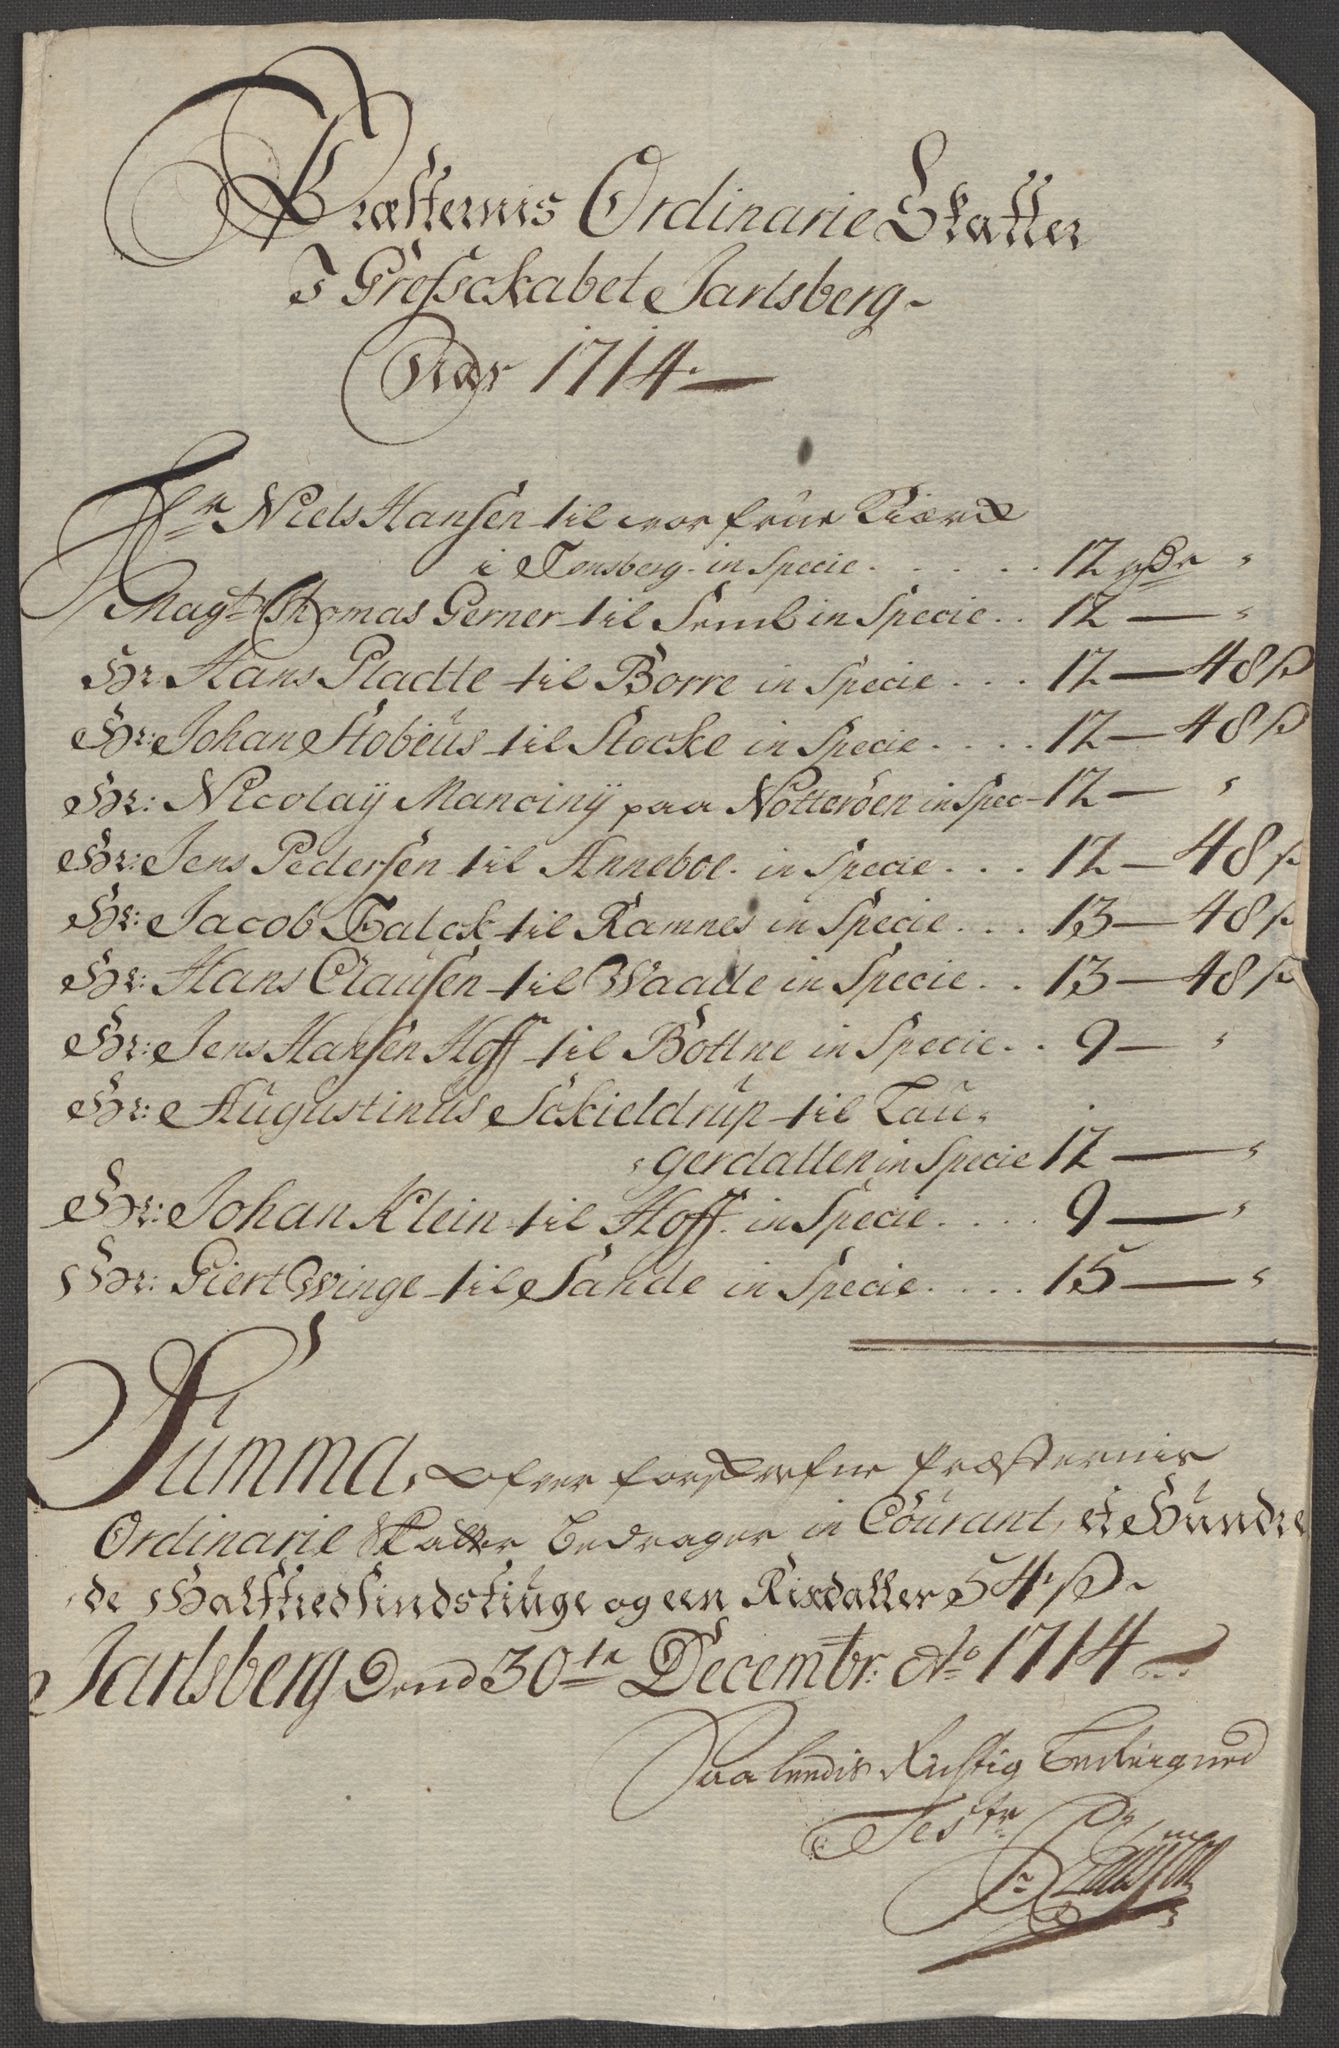 Præsternis Ordinarie Skatter
I Grefsckabet Jarlsberg
Aar 1714
Hr Niels Hansen til vor frue Kirke
i Tonsberg in Specie . . . . . 12 rdr "
Magr Thomas Gerner til Semb in Specie . . 12 — "
Hr: Hans Pladtte til Borre in Specie . . . . 12 — 48 ß
Hr: Johan Stobeus til Stocke in Specie . . . . 12 — 48 ß
Hr: Nicolaÿ Mancinÿ paa Nötteröen in Spec— 12 — "
Hr: Jens Pedersen til Anneboe in Specie . . . 12 — 48 ß
Hr: Jacob Falck til Ramnes in Specie . . . 13 — 48 ß
Hr: Hans Clausen til Waadle in Specie . . 13 — 48 ß
Hr: Jens Hansen Hoff til Bottne in Specie . . 9 — "
Hr: Augustinus Sckieldrup til Lau-
gerdallen in Specie 12 — "
Hr: Johan Klein til Hoff in Specie . . . . 9 — "
Hr: Giert Winge til Sande in Specie . . . . 15 — "
Summa, ofver forskrefne Præsternis
Ordinarie Skatter bedrager in Courant, et Hundre
de Halftredsindstiuge og een Rixdaller 54 ß
Jarlsberg Dend 30te Decembr: Ao 1714
Saaleedis Rigtig
Tester